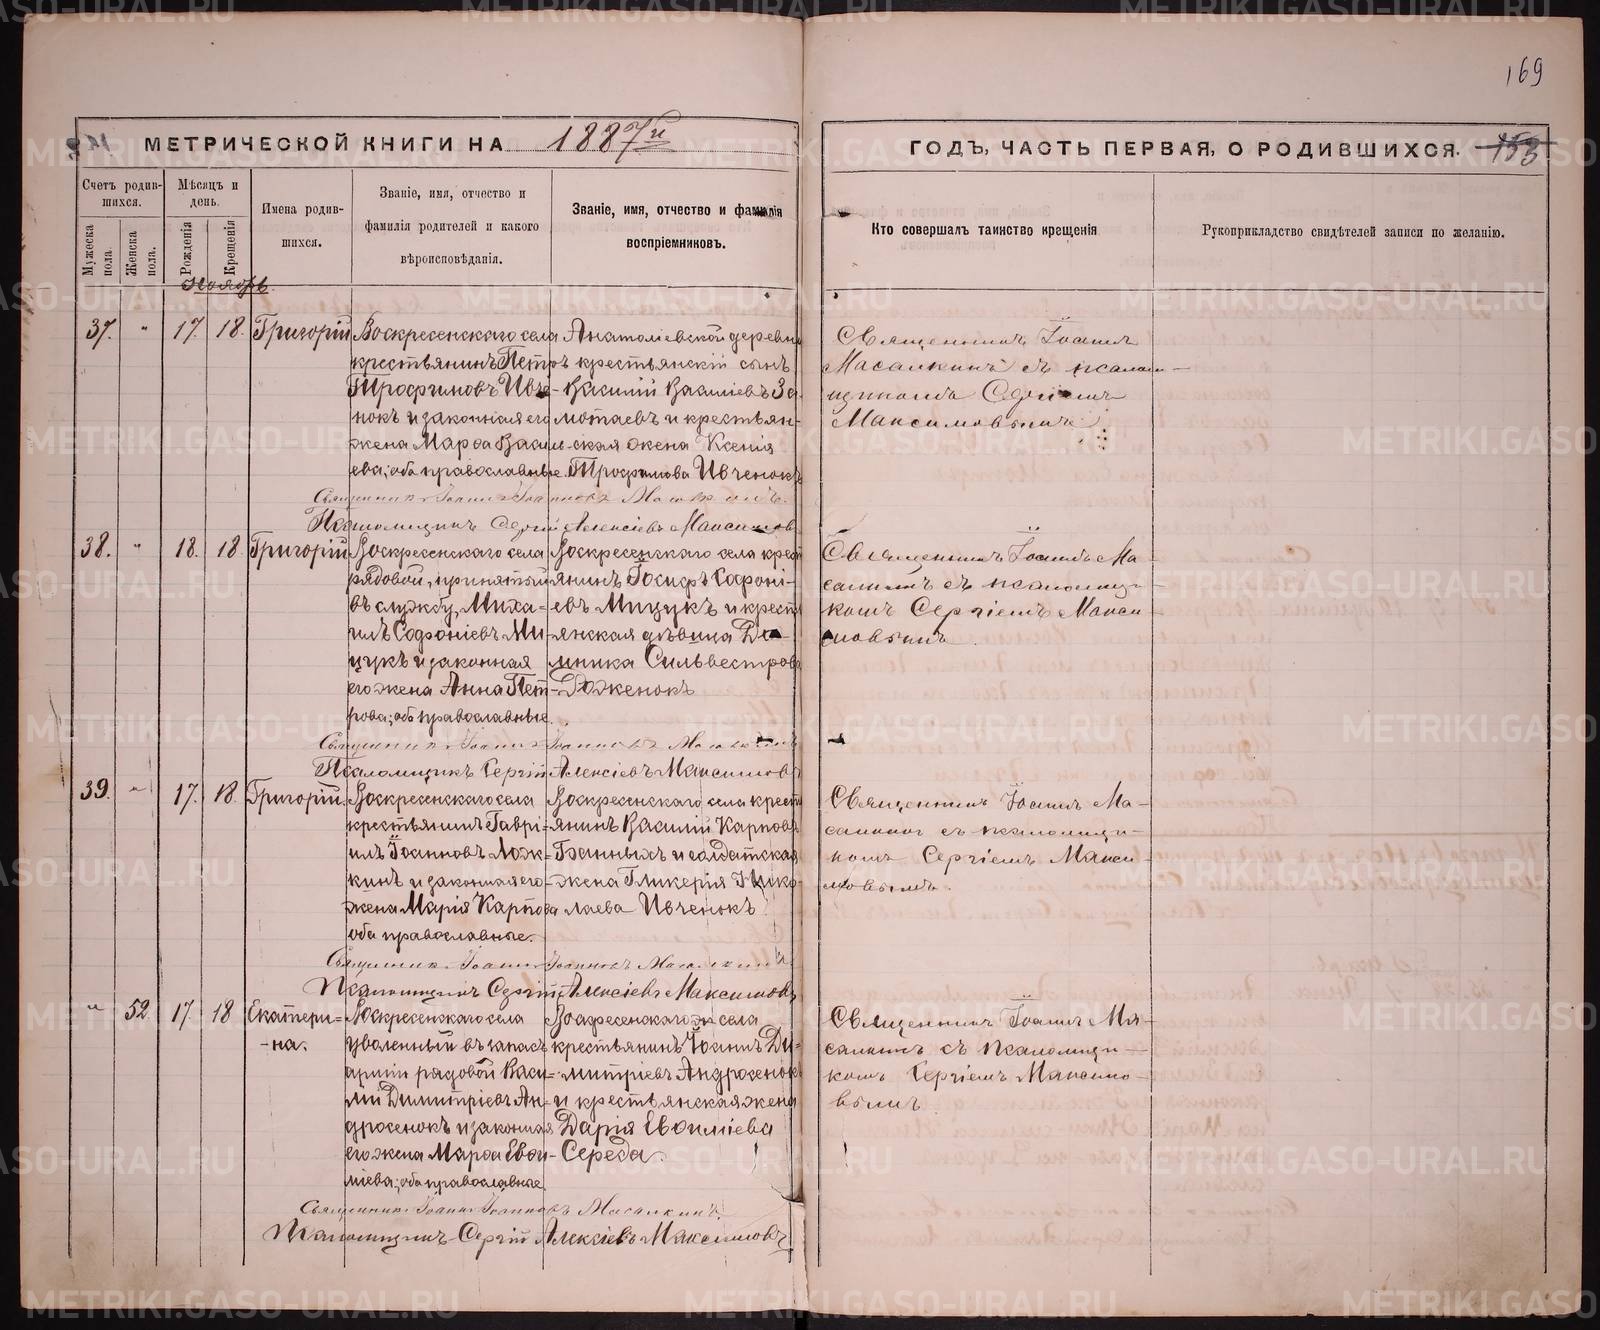 169
МЕТРИЧЕСКОЙ КНИГИ НА 1887й
ГОДЪ, ЧАСТЬ ПЕРВАЯ, О РОДИВШИХСЯ. 153
Счетъ родив-
шихся.
Мужеска пола.
Женска пола.
Мѣсяцъ и
день.
Рожденія
Крещенія
Имена родив-
шихся.
Званіе, имя, отчество и
фамилія родителей и какого
вѣроисповѣданія.
Званіе, имя, отчество и фамилія
воспріемниковъ.
Кто совершалъ таинство крещенія
Рукоприкладство свидѣтелей записи по желанію.
Ноябрь.
37. " 17. 18. Григорій
Воскресенскаго села
крестьянинъ Петръ
Трофимовъ Ивче-
нокъ и законная его
жена Марѳа Васил-
ева; оба православные.
Анатолиевской деревни
крестьянскій сынъ
Василій Василіевъ За-
мотаевъ и крестьян-
ская жена Ксенія
Трофимова Ивченокъ
Священникъ Іоаннъ
Масалкинъ съ псалом-
щикомъ Сергіемъ
Максимовымъ
Священникъ Іоаннъ Іоанновъ Масалкинъ.
Псаломщикъ Сергій Алексіевъ Максимовъ
38. " 18. 18. Григорій
Воскресенскаго села
рядовой, принятый
въ службу, Миха-
илъ Софоніевъ Ми-
цукъ и законная
его жена Анна Пет-
рова; оба православные.
Воскресенскаго села крест
янинъ Іосифъ Софоні-
евъ Мицукъ и крест
янская дѣвица До-
мника Сильвестров
Боженокъ
Священникъ Іоаннъ Ма-
салкинъ съ псаломщи-
комъ Сергіемъ Макси-
мовымъ.
Священникъ Іоаннъ Іоанновъ Масалкинъ
Псаломщикъ Сергій Алексіевъ Максимовъ
39. " 17. 18. Григорій.
Воскресенскаго села
крестьянинъ Гаврі-
илъ Іоанновъ Лож-
кинъ и законная его
жена Марія Карпова
оба православные.
Воскресенскаго села крест
янинъ Василій Карповъ
и солдатская
жена Гликерія Нико-
лаева Ивченокъ
Священникъ Іоаннъ Ма-
салкинъ съ псаломщи-
комъ Сергіемъ Макси-
мовымъ.
Священникъ Іоаннъ Іоанновъ Масалкинъ
Псаломщикъ Сергій Алексіевъ Максимовъ
" 52 17. 18 Екатери-
-на.
Воскресенскаго села
уволенный въ запасъ
арміи рядовой Васи-
лій Димитріевъ Ан-
дросенокъ и законная
его жена Марѳа Евѳи-
міева; оба православные.
Воскресенскаго села
крестьянинъ Іоаннъ Ди-
митріевъ Андросенокъ
и крестьянская жена
Дарія Евѳиміева
Середа.
Священникъ Іоаннъ Ма-
салкинъ съ псаломщи-
комъ Сергіемъ Максимо-
вымъ.
Священникъ Іоаннъ Іоанновъ Масалкинъ.
Псаломщикъ Сергій Алексіевъ Максимовъ
METRIKI.GASO-URAL.RU